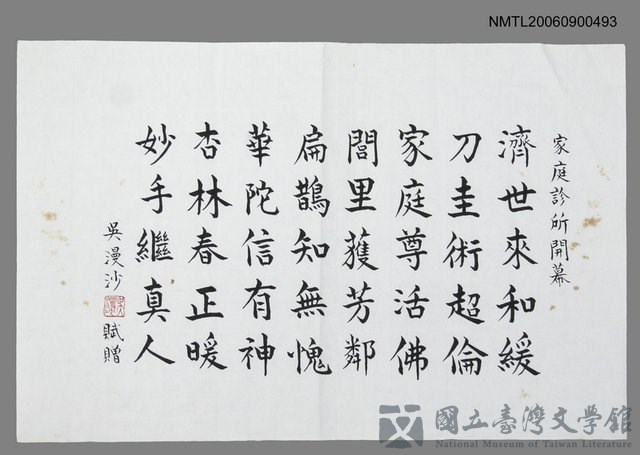 NMTL20060900493
家庭診所開幕
濟世來和緩
刀圭術超倫
家庭尊活佛
閭里蒦芳鄰
扁鵲知無愧
華陀信有神
杏林春正暖
妙手繼真人
吳漫沙
賦贈
國立臺灣文學館
National Museum of Taiwan Literature